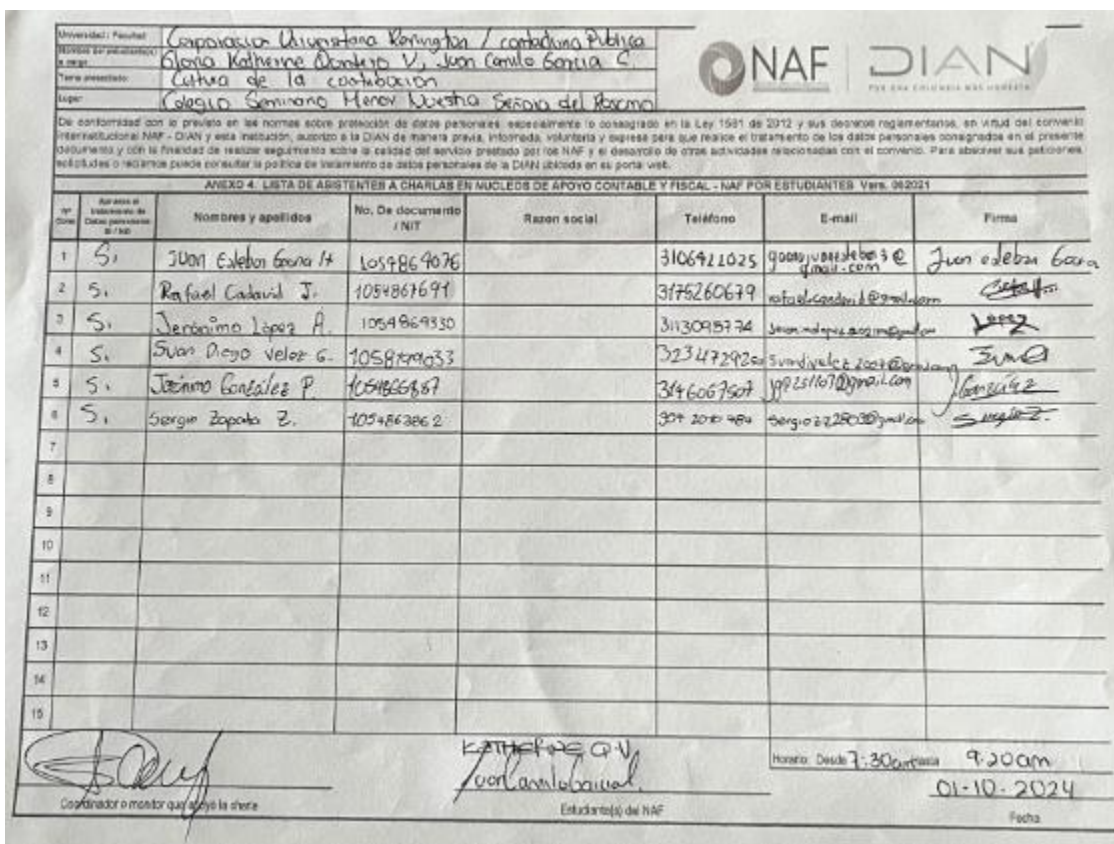 Universidad / Facultad: Corporacion Universitaria Remington / contaduria Publica
Nombre del estudiante(s) a cargo: Gloria Katherine V, Juan Camilo Garcia C.
Tema presentado: Cultura de la contribucion
Lugar: Colegio Seminario Menor Nuestra Señora del Rosario
NAF DIAN
POR UNA COLOMBIA MÁS HONESTA
De conformidad con lo previsto en las normas sobre protección de datos personales, especialmente lo consagrado en la Ley 1581 de 2012 y sus decretos reglamentarios, en virtud del convenio
interinstitucional NAF - DIAN y esta institución, autorizo a la DIAN de manera previa, informada, voluntaria y expresa para que realice el tratamiento de los datos personales consignados en el presente
documento y con la finalidad de realizar seguimiento sobre la calidad del servicio prestado por los NAF y el desarrollo de otras actividades relacionadas con el convenio. Para absolver sus peticiones,
solicitudes o reclamos puede consultar la política de tratamiento de datos personales de la DIAN ubicada en su portal web.
ANEXO 4. LISTA DE ASISTENTES A CHARLAS EN NUCLEOS DE APOYO CONTABLE Y FISCAL - NAF POR ESTUDIANTES Vers. 062021
Nº tratamiento de Datos personales SI / NO Nombres y apellidos No. De documento / NIT Razon social Teléfono E-mail Firma
1 Si Juan Esteban H 1054869076 3106421025 @gmail.com Juan esteban
2 Si Rafael Cadavid J. 1054867691 3175260679
3 Si Jerónimo López A. 1054869330 3113095774 López
4 Si Diego Velez G.
5 Si González P. 3146067507 González
6 Si Sergio Zapata Z. 1054863862 Sergio Z.
7
8
9
10
11
12
13
14
15
KATHERINE Q.V
Juan Camilo
Coordinador o monitor que apoyó la charla
Estudiante(s) del NAF
Horario: Desde 7:30am hasta 9:20am
01-10-2024
Fecha